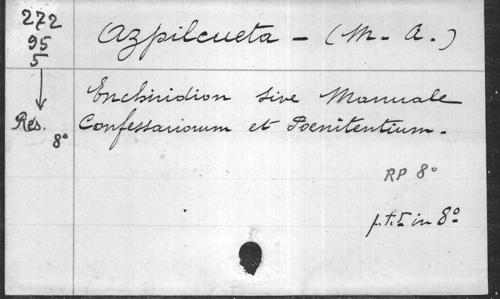 272
95
5
Res.
8º
Azpilcueta - (M. A.)
Enchiridion sive Manuale
Confessariorum et Poenitentium.
RP 8º
in 8º